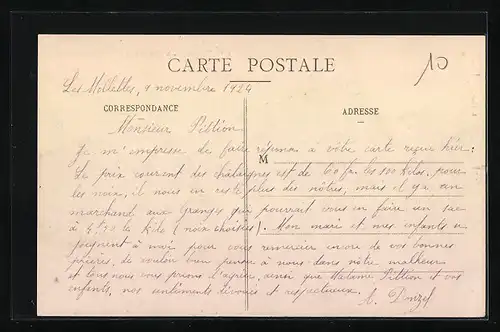 CARTE POSTALE
10
Les Mollettes, 9 novembre 1924
CORRESPONDANCE
ADRESSE
Monsieur Pittion
Je m'empresse de faire réponse à votre carte reçue hier:
M
Le prix courant des châtaignes est de 60 fr. les 100 kilos, pour
les noix, il nous en reste plus des nôtres, mais il y a un
marchand aux Granges qui pourrait vous en faire un sac
à le kilo (noix choisies). Mon mari et mes enfants se
joignent à moi pour vous remercier encore de vos bonnes
prières, de vouloir bien penser à nous dans notre malheur
et tous nous vous prions d'agréer, ainsi que Madame Pittion et vos
enfants, nos sentiments dévoués et respectueux.
A. Donzel